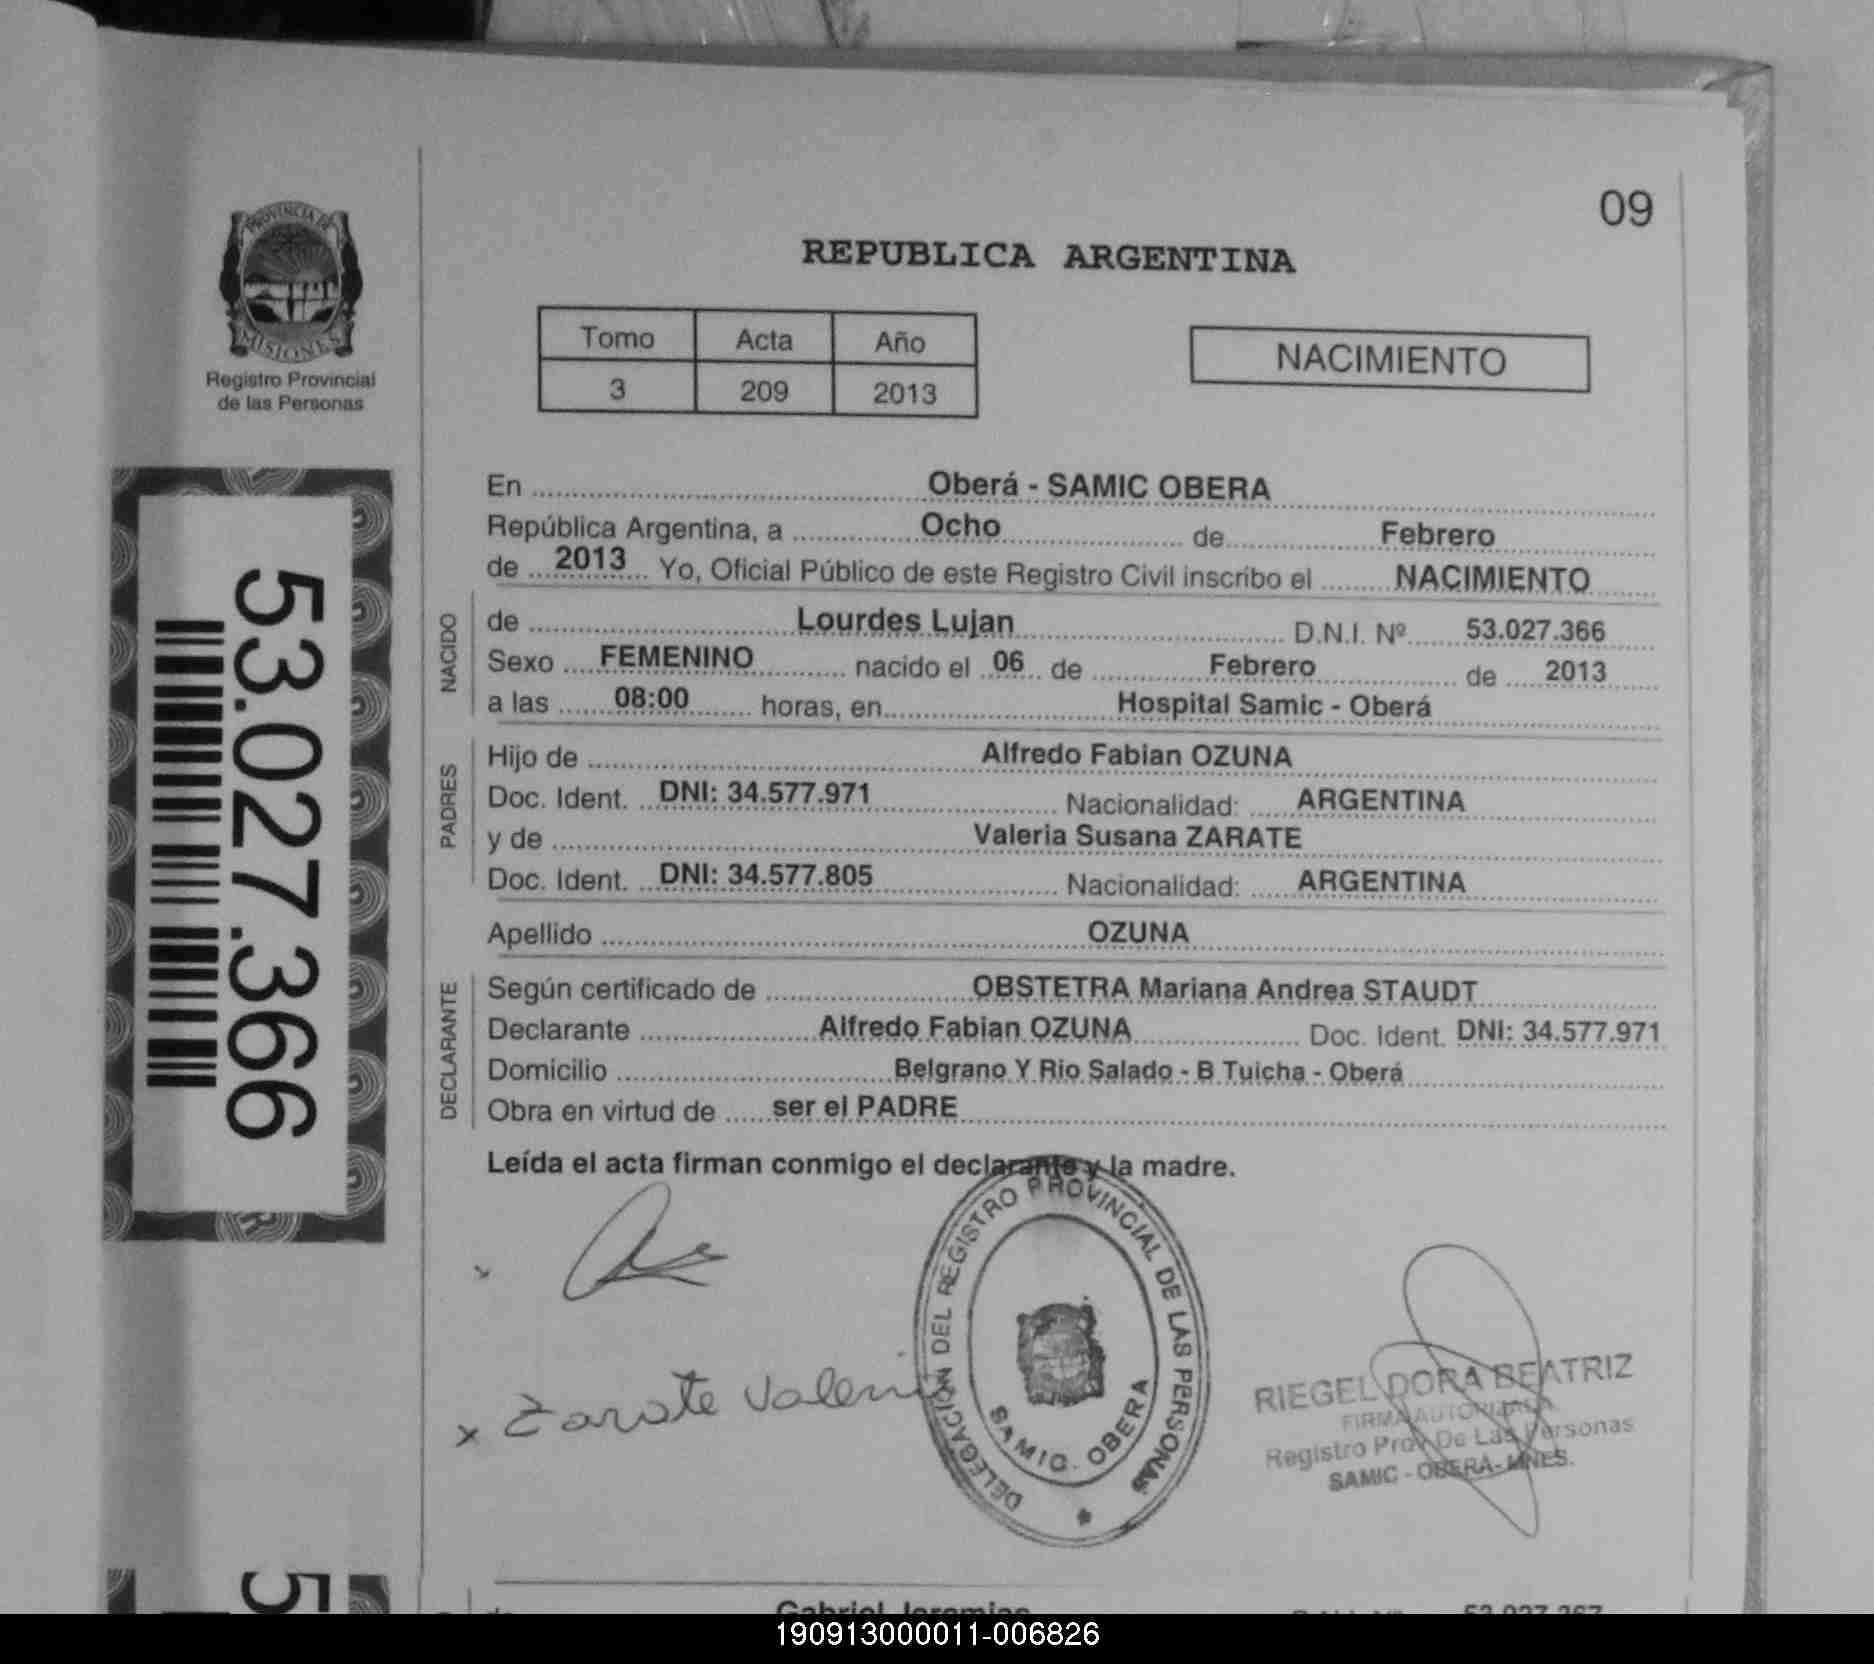 09
PROVINCIA DE
MISIONES
Registro Provincial
de las Personas
REPUBLICA ARGENTINA
Tomo Acta Año
3 209 2013
NACIMIENTO
53.027.366
En Oberá - SAMIC OBERA
República Argentina, a Ocho de Febrero
de 2013 Yo, Oficial Público de este Registro Civil inscribo el NACIMIENTO
NACIDO
de Lourdes Lujan D.N.I. Nº 53.027.366
Sexo FEMENINO nacido el 06 de Febrero de 2013
a las 08:00 horas, en Hospital Samic - Oberá
PADRES
Hijo de Alfredo Fabian OZUNA
Doc. Ident. DNI: 34.577.971 Nacionalidad: ARGENTINA
y de Valeria Susana ZARATE
Doc. Ident. DNI: 34.577.805 Nacionalidad: ARGENTINA
Apellido OZUNA
DECLARANTE
Según certificado de OBSTETRA Mariana Andrea STAUDT
Declarante Alfredo Fabian OZUNA Doc. Ident. DNI: 34.577.971
Domicilio Belgrano Y Rio Salado - B Tuicha - Oberá
Obra en virtud de ser el PADRE
Leída el acta firman conmigo el declarante y la madre.
x Zarate Valeria
DELEGACIÓN DEL REGISTRO PROVINCIAL DE LAS PERSONAS
SAMIC. OBERA
RIEGEL DORA BEATRIZ
FIRMA AUTORIZADA
Registro Prov De Las Personas
SAMIC - OBERA - MNES.
5
Gabriel Jeremias 53.027.367
190913000011-006826